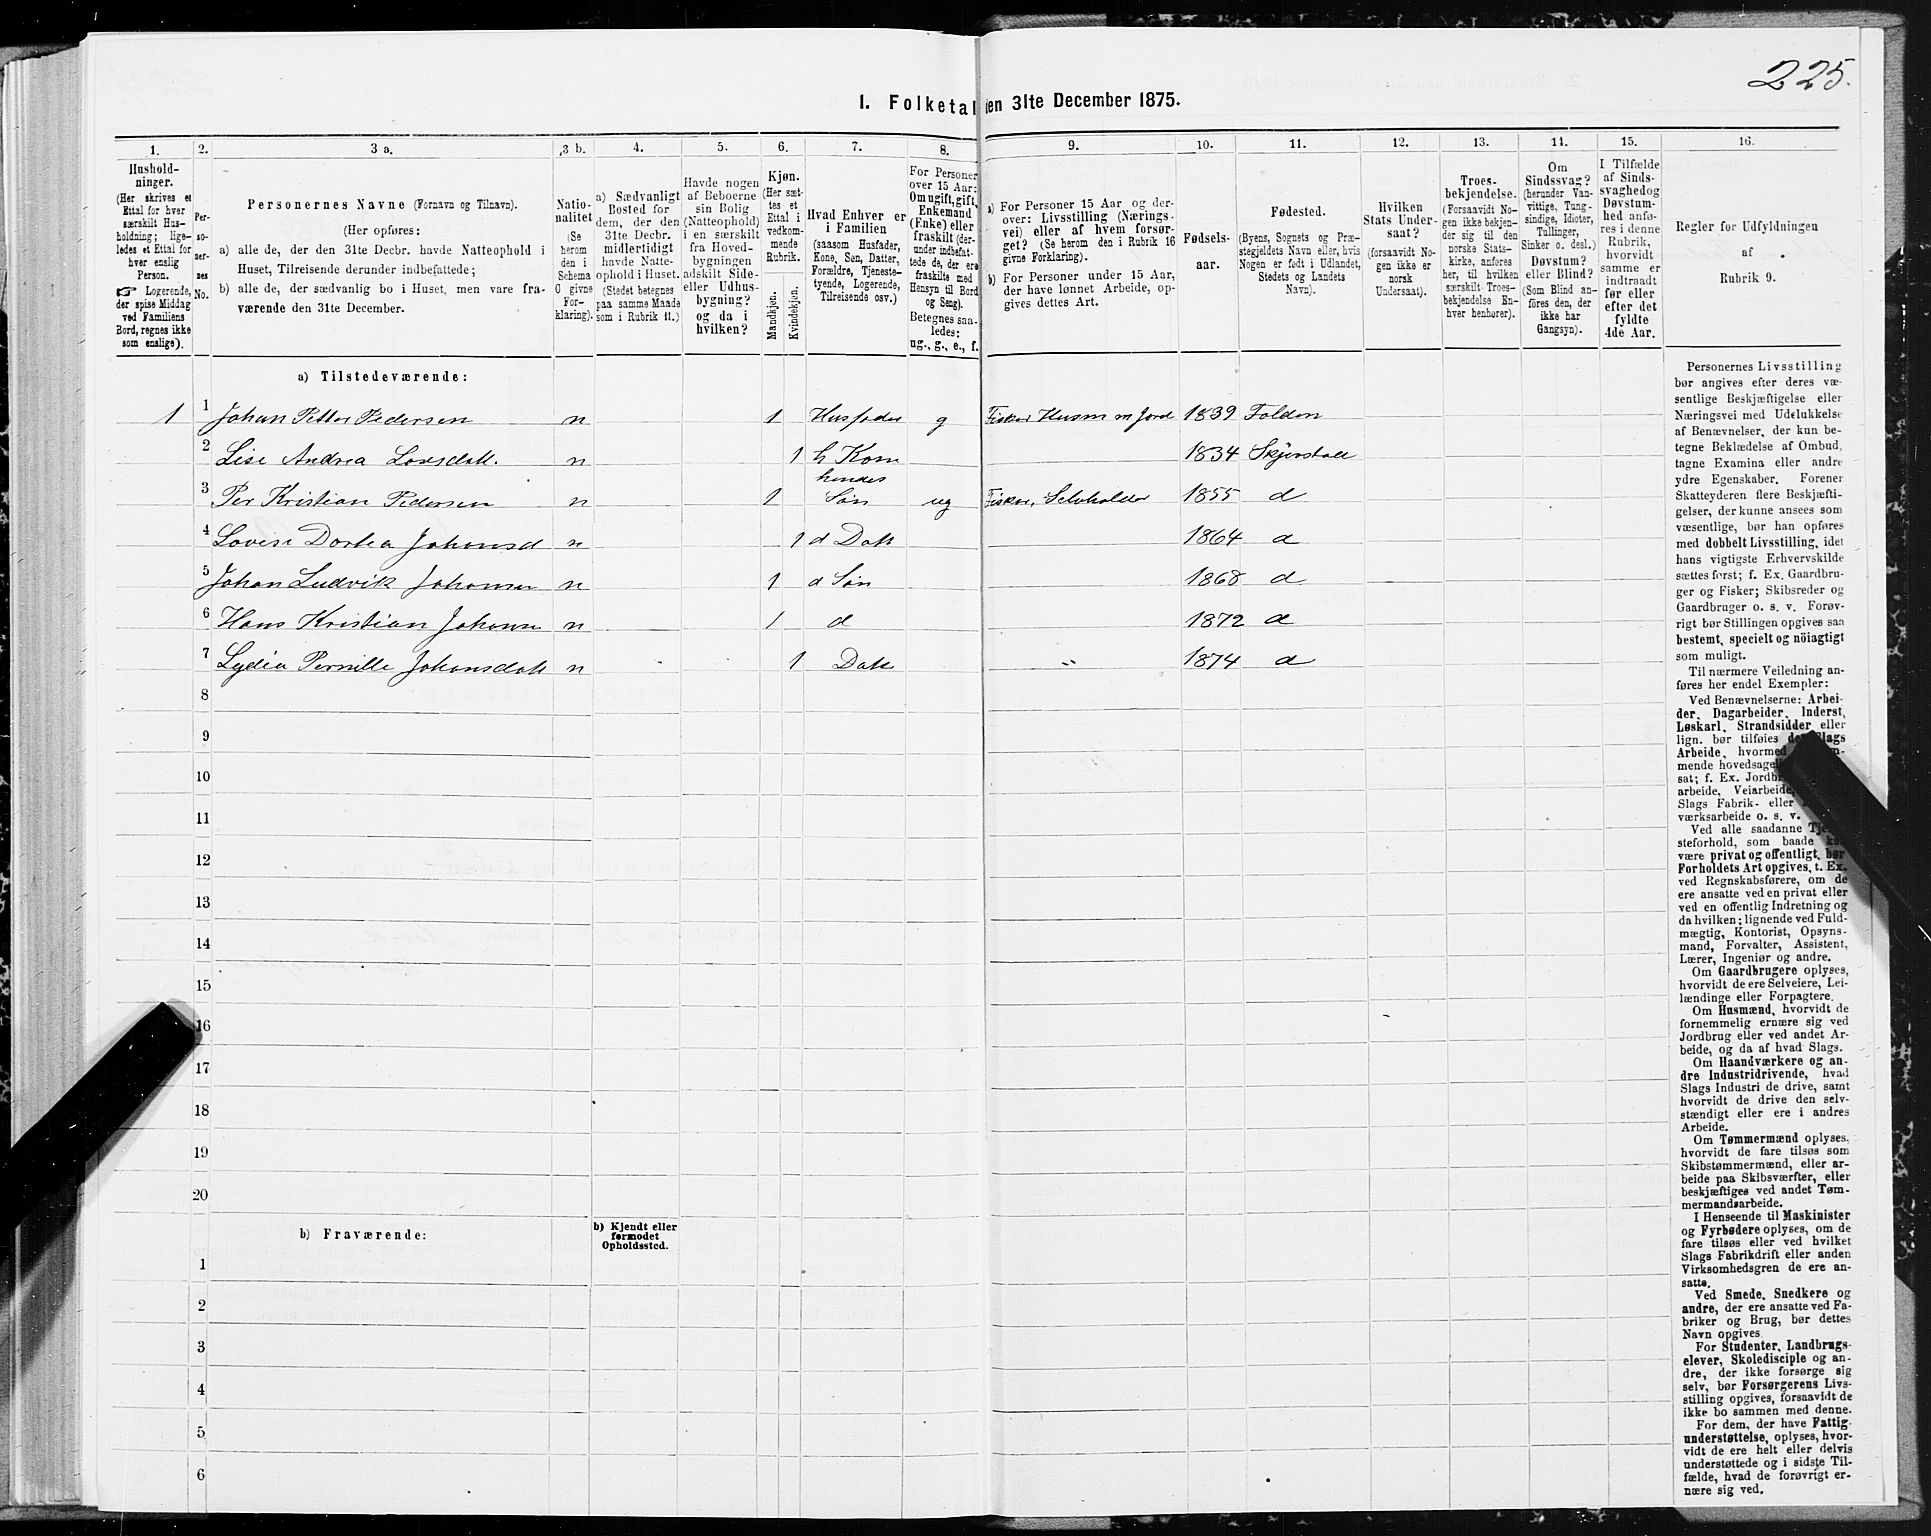 225.
1. Folketal den 31te December 1875.
1. 2. 3 a. 3 b. 4. 5. 6. 7. 8. 9. 10. 11. 12. 13. 14. 15. 16.
Hushold-
ninger.
(Her skrives et
Ettal for hver
særskilt Hus-
holdning; lige-
ledes et Ettal for
hver enslig
Person.
☞ Logerende,
der spise Middag
ved Familiens
Bord, regnes ikke
som enslige).
Per-
so-
ner-
nes
No.
Personernes Navne (Fornavn og Tilnavn).
(Her opføres:
a) alle de, der den 31te Decbr. havde Natteophold i
Huset, Tilreisende derunder indbefattede;
b) alle de, der sædvanlig bo i Huset, men vare fra-
værende den 31te December.
Natio-
nalitet
(Se
herom
den i
Schema
O givne
For-
klaring).
a) Sædvanligt
Bosted for
dem, der den
31te Decbr.
midlertidigt
havde Natte-
ophold i Huset.
(Stedet betegnes
paa samme Maade
som i Rubrik 11.)
Havde nogen
af Beboerne
sin Bolig
(Natteophold)
i en særskilt
fra Hoved-
bygningen
adskilt Side-
eller Udhus-
bygning?
og da i
hvilken?
Kjøn.
(Her sæt-
tes et
Ettal i
vedkom-
mende
Rubrik.
Mandkjøn.
Kvindekjøn.
Hvad Enhver er
i Familien
(saasom Husfader,
Kone, Søn, Datter,
Forældre, Tjeneste-
tyende, Logerende,
Tilreisende osv.)
For Personer
over 15 Aar:
Om ugift, gift,
Enkemand
(Enke) eller
fraskilt (der-
under indbefat-
tede de, der ere
fraskilte med
Hensyn til Bord
og Seng).
Betegnes saa-
ledes:
ug., g., e., f.
a) For Personer 15 Aar og der-
over: Livsstilling (Nærings-
vei) eller af hvem forsør-
get? (Se herom den i Rubrik 16
givne Forklaring).
b) For Personer under 15 Aar,
der have lønnet Arbeide, op-
gives dettes Art.
Fødsels-
aar.
Fødested.
(Byens, Sognets og Præ-
stegjeldets Navn eller, hvis
Nogen er født i Udlandet,
Stedets og Landets
Navn).
Hvilken
Stats Under-
saat?
(forsaavidt No-
gen ikke er
norsk
Undersaat).
Troes-
bekjendelse.
(Forsaavidt No-
gen ikke bekjen-
der sig til den
norske Stats-
kirke, anføres
her, til hvilken
særskilt Troes-
bekjendelse En-
hver henhører).
Om
Sindssvag?
(herunder Van-
vittige, Tung-
sindige, Idioter,
Tullinger,
Sinker o. desl.)
Døvstum?
eller Blind?
(Som Blind an-
føres den, der
ikke har
Gangsyn).
I Tilfælde
af Sinds-
svaghed og
Døvstum-
hed anfø-
res i denne
Rubrik,
hvorvidt
samme er
indtraadt
før eller
efter det
fyldte
4de Aar.
Regler for Udfyldningen
af
Rubrik 9.
a) Tilstedeværende:
1 1 Johan Petter Pedersen n 1 Husfader g Fisker Husm m Jord 1839 Folden
2 Lise Andrea Larsdatt. n 1 h Kone 1834 Skjerstad
hendes
3 Per Kristian Pedersen n 1 Søn ug Fisker, Selvholder 1855 d
4 Lovise Dortea Johansd n 1 d Datt 1864 d
5 Johan Ludvik Johansen n 1 d Søn 1868 d
6 Hans Kristian Johansen n 1 d 1872 d
7 Lydia Pernille Johansdatt n 1 Datt " 1874 d
8
9
10
11
12
13
14
15
16
17
18
19
20
b) Fraværende:
b) Kjendt eller
formodet
Opholdssted.
1
2
3
4
5
6
Personernes Livsstilling
bør angives efter deres væ-
sentlige Beskjæftigelse eller
Næringsvei med Udelukkelse
af Benævnelser, der kun be-
tegne Beklædelse af Ombud,
tagne Examina eller andre
ydre Egenskaber. Forener
Skatteyderen flere Beskjæfti-
gelser, der kunne ansees som
væsentlige, bør han opføres
med dobbelt Livsstilling, idet
hans vigtigste Erhvervskilde
sættes først; f. Ex. Gaardbru-
ger og Fisker; Skibsreder og
Gaardbruger o. s. v. Forøv-
rigt bør Stillingen opgives saa
bestemt, specielt og nöiagtigt
som muligt.
Til nærmere Veiledning an-
føres her endel Exempler:
Ved Benævnelserne: Arbei-
der, Dagarbeider, Inderst,
Løskarl, Strandsidder eller
lign. bør tilføies det Slags
Arbeide, hvormed
mende hovedsagel
sat; f. Ex. Jordb
arbeide, Veiarbeide,
Slags Fabrik- eller
værksarbeide o. s. v.
Ved alle saadanne Tje-
steforhold, som baade
være privat og offentligt, bør
Forholdets Art opgives, t. Ex.
ved Regnskabsførere, om de
ere ansatte ved en privat eller
ved en offentlig Indretning og
da hvilken; lignende ved Fuld-
mægtig, Kontorist, Opsyns-
mand, Forvalter, Assistent,
Lærer, Ingeniør og andre.
Om Gaardbrugere oplyses,
hvorvidt de ere Selveiere, Lei-
lændinge eller Forpagtere.
Om Husmænd, hvorvidt de
fornemmelig ernære sig ved
Jordbrug eller ved andet Ar-
beide, og da af hvad Slags.
Om Haandværkere og an-
dre Industridrivende, hvad
Slags Industri de drive, samt
hvorvidt de drive den selv-
stændigt eller ere i andres
Arbeide.
Om Tømmermænd oplyses,
hvorvidt de fare tilsøs som
Skibstømmermænd, eller ar-
beide paa Skibsværfter, eller
beskjæftiges ved andet Tøm-
mermandsarbeide.
I Henseende til Maskinister
og Fyrbødere oplyses, om de
fare tilsøs eller ved hvilket
Slags Fabrikdrift eller anden
Virksomhedsgren de ere an-
satte.
Ved Smede, Snedkere og
andre, der ere ansatte ved Fa-
briker og Brug, bør dettes
Navn opgives.
For Studenter, Landbrugs-
elever, Skoledisciple og an-
dre, der ikke forsørge sig
selv, bør Forsørgerens Livs-
stilling opgives, forsaavidt de
ikke bo sammen med denne.
For dem, der have Fattig-
understøttelse, oplyses, hvor-
vidt de ere helt eller delvis
understøttede og i sidste Til-
fælde, hvad de forøvrigt er-
nære sig ved.